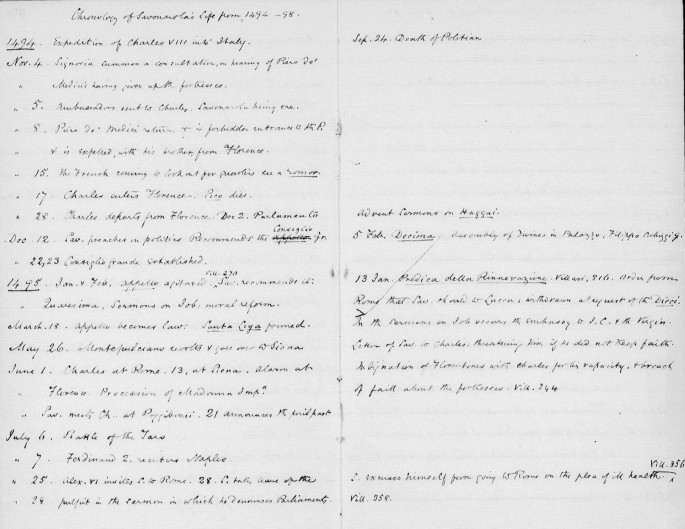 Chronology of Savonarola's Life from 1494 – 98.
1494. Expedition of Charles VIII into Italy.
Nov. 4. Signoria summon a consultation, on hearing of Piero de'
Medici's having given up the fortresses.
" 5. Ambassadors sent to Charles, Savonarola being one.
" 8. Piero de' Medici returns, & is forbidden entrance to the P.
& is expelled, with his brothers, from Florence.
" 15. The French coming to look out for quarters see a romor.
" 17. Charles enters Florence. Pico dies.
" 28. Charles departs from Florence. Dec 2. Parlamento
Dec. 12. Sav. preaches on politics. Recommends the appello Consiglio
" 22, 23 Consiglio grande established.
1495. Jan. & Feb. appello agitated, Sav. recommends it. Vill. 270
Quaresima, Sermons on Job, moral reform.
March. 18. appello becomes law. Santa Lega formed.
May 26. Montepulcians revolts & goes over to Siena
June 1. Charles at Rome. 13, at Siena. Alarm at
" Florence. Procession of Madonna Imp.a
" Sav. meets Ch. at Poggibonsi. 21 announces the peril past
July 6. Battle of the Taro
" 7. Ferdinand 2. reenters Naples.
" 25. Alex. VI invites S. to Rome. 28. S. takes leave of the
" 28 pulpit in the sermon in which he denounces Parliaments.
Sep. 24. Death of Politian
Advent Sermons on Haggai.
5 Feb. Decima. Assembly of Divines in Palazzo,
13 Jan. Predica della Rinnovazione. Villari, 816. Order from
Rome that Sav. should to Lucca, withdrawn at request of the Dieci.
In the sermons on Job occurs the embassy to J.C. & the Virgin.
Letter of Sav. to Charles, threatening him if he did not keep faith.
Indignation of Florentines with Charles for his rapacity, & breach
of faith about the fortresses. Vill. 344
S. excuses himself from going to Rome on the plea of ill health. Vill. 356
Vill. 358.